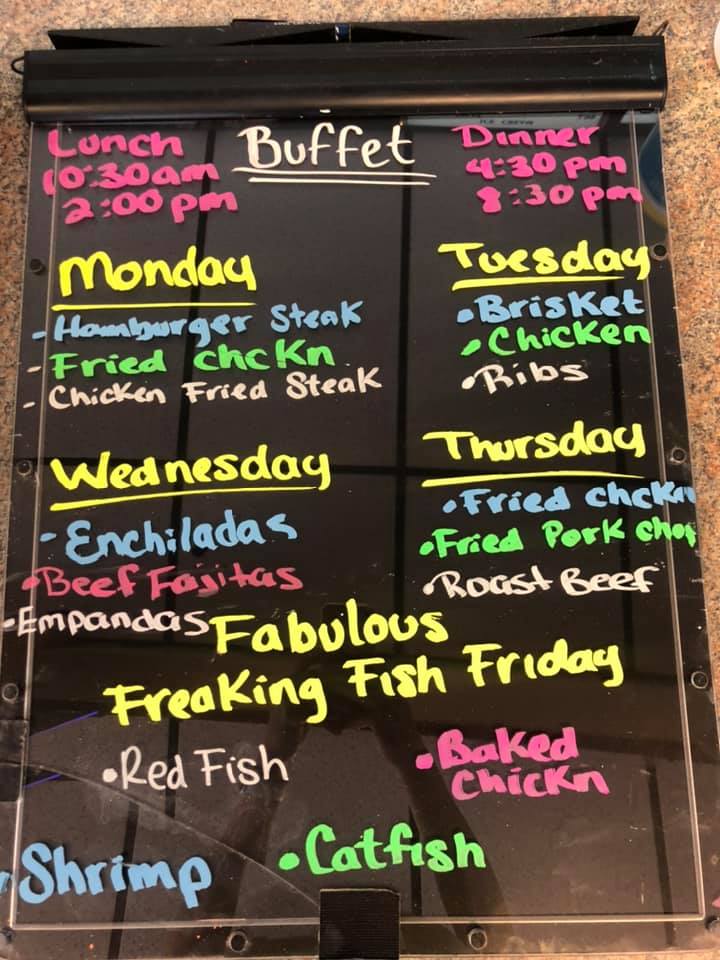 Lunch
10:30am
2:00 pm
Buffet
Dinner
4:30 pm
8:30 pm
Monday
- Hamburger Steak
- Fried chcKn
- Chicken Fried Steak
Tuesday
• Brisket
• Chicken
• Ribs
Wednesday
- Enchiladas
• Beef Fajitas
• Empandas
Thursday
• Fried chckn
• Fried Pork chop
• Roast Beef
Fabulous
Freaking Fish Friday
• Red Fish
• Baked
Chickn
• Shrimp
• Catfish